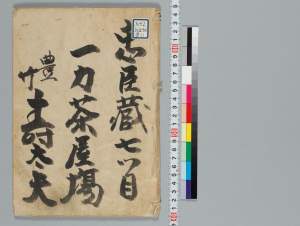 忠臣蔵七ツ目
一力茶屋場
豊竹
寿太夫